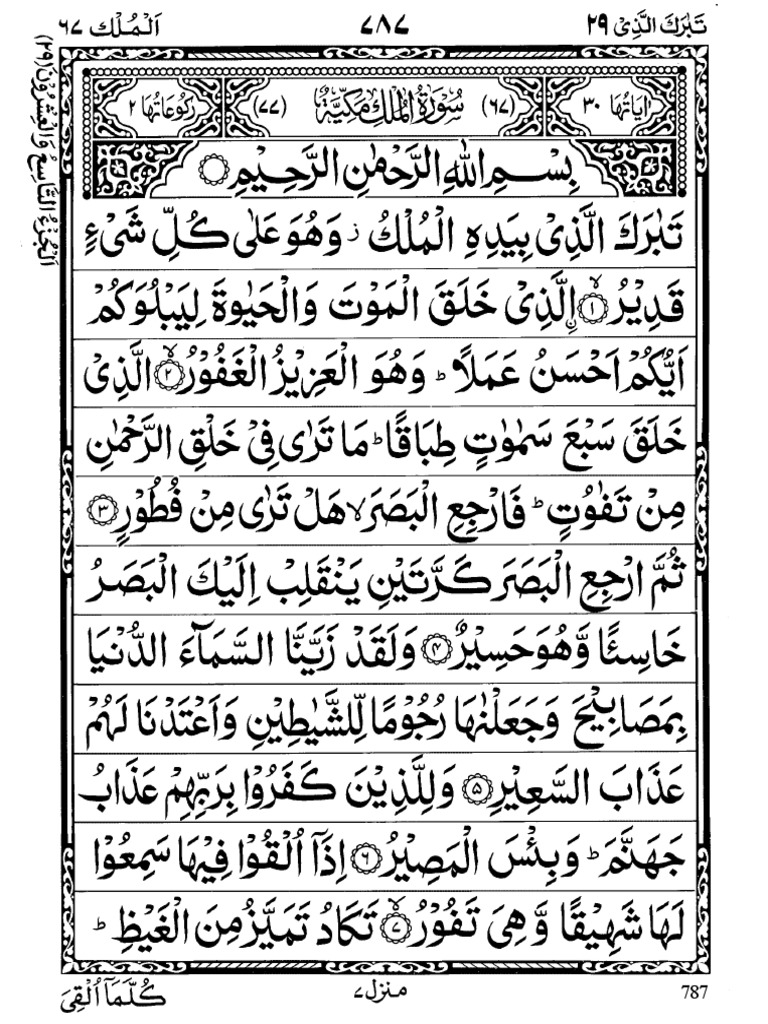 تَبٰرَكَ الَّذِیْ ٢٩
٧٨٧
اَلْمُلْك ٦٧
اَلْجُزْءُ التَّاسِعُ وَالْعُشْرُوْنَ (٢٩)
اٰیَاتُهَا ٣٠
(٦٧) سُوْرَةُ الْمُلْكِ مَكِّیَّةٌ (٧٧)
رُكُوْعَاتُهَا ٢
بِسْمِ اللّٰهِ الرَّحْمٰنِ الرَّحِیْمِ
تَبٰرَكَ الَّذِیْ بِیَدِهِ الْمُلْكُ ز وَهُوَ عَلٰى كُلِّ شَیْءٍ
قَدِیْرُ ۙ﴿١﴾ اۨلَّذِیْ خَلَقَ الْمَوْتَ وَالْحَیٰوةَ لِیَبْلُوَكُمْ
اَیُّكُمْ اَحْسَنُ عَمَلًا ؕ وَهُوَ الْعَزِیْزُ الْغَفُوْرُ ۙ﴿٢﴾ الَّذِیْ
خَلَقَ سَبْعَ سَمٰوٰتٍ طِبَاقًا ؕ مَا تَرٰى فِیْ خَلْقِ الرَّحْمٰنِ
مِنْ تَفٰوُتٍ ؕ فَارْجِعِ الْبَصَرَ ۙ هَلْ تَرٰى مِنْ فُطُوْرٍ ﴿٣﴾
ثُمَّ ارْجِعِ الْبَصَرَ كَرَّتَیْنِ یَنْقَلِبْ اِلَیْكَ الْبَصَرُ
خَاسِئًا وَّهُوَ حَسِیْرٌ ﴿۴﴾ وَلَقَدْ زَیَّنَّا السَّمَآءَ الدُّنْیَا
بِمَصَابِیْحَ وَجَعَلْنٰهَا رُجُوْمًا لِّلشَّیٰطِیْنِ وَاَعْتَدْنَا لَهُمْ
عَذَابَ السَّعِیْرِ ﴿۵﴾ وَلِلَّذِیْنَ كَفَرُوْا بِرَبِّهِمْ عَذَابُ
جَهَنَّمَ ؕ وَبِئْسَ الْمَصِیْرُ ﴿٦﴾ اِذَاۤ اُلْقُوْا فِیْهَا سَمِعُوْا
لَهَا شَهِیْقًا وَّهِیَ تَفُوْرُ ۙ﴿٧﴾ تَكَادُ تَمَیَّزُ مِنَ الْغَیْظِ ؕ
787
منزل ٧
كُلَّمَاۤ اُلْقِیَ